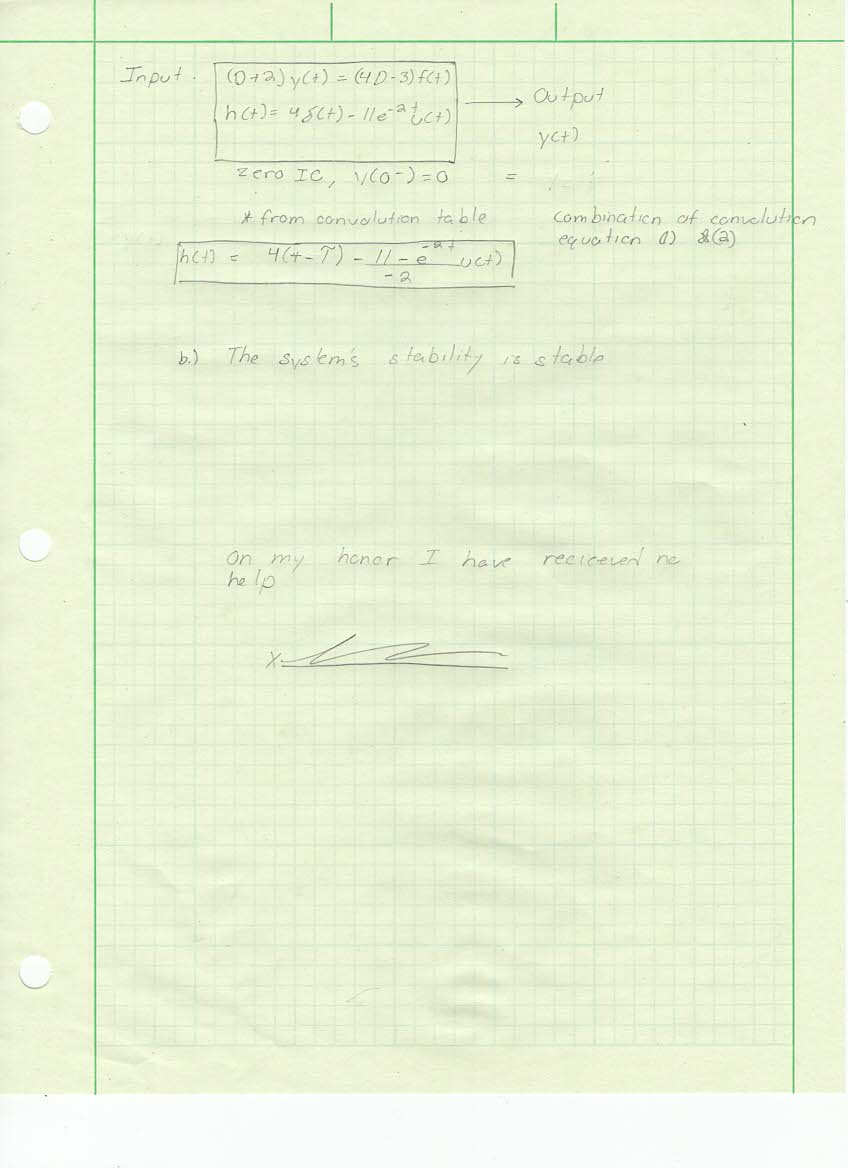 Input. (D+2) y(t) = (4D-3) f(t)
h(t) = 4δ(t) - 11e^-2t u(t) → Output
y(t)
zero IC, y(0-) = 0 =
* from convolution table
combination of convolution
equation (1) &(2)
h(t) = 4(t-T) - 11 - e^-2t / -2 u(t)
b.) The system's stability is stable
On my honor I have recieeved no
help
X